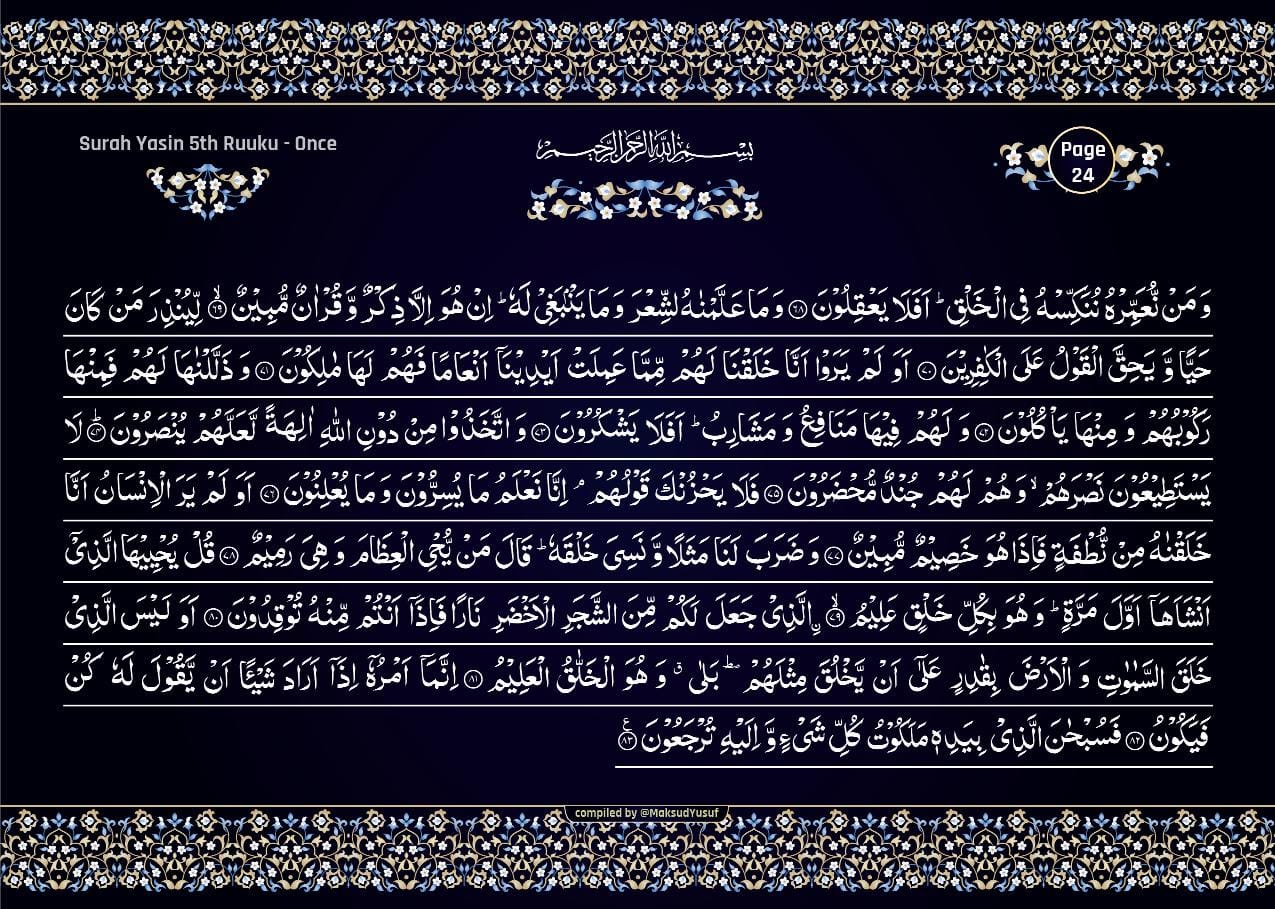 Surah Yasin 5th Ruuku - Once
بِسْمِ اللهِ الرَّحْمٰنِ الرَّحِيْمِ
Page
24
وَ مَنْ نُّعَمِّرْهُ نُنَكِّسْهُ فِي الْخَلْقِ ؕ اَفَلَا يَعْقِلُوْنَ ﴿۶۸﴾ وَ مَا عَلَّمْنٰهُ الشِّعْرَ وَ مَا يَنْۢبَغِيْ لَهٗ ؕ اِنْ هُوَ اِلَّا ذِكْرٌ وَّ قُرْاٰنٌ مُّبِيْنٌ ﴿ۙ۶۹﴾ لِّيُنْذِرَ مَنْ كَانَ
حَيًّا وَّ يَحِقَّ الْقَوْلُ عَلَى الْكٰفِرِيْنَ ﴿۷۰﴾ اَوَ لَمْ يَرَوْا اَنَّا خَلَقْنَا لَهُمْ مِّمَّا عَمِلَتْ اَيْدِيْنَاۤ اَنْعَامًا فَهُمْ لَهَا مٰلِكُوْنَ ﴿۷۱﴾ وَ ذَلَّلْنٰهَا لَهُمْ فَمِنْهَا
رَكُوْبُهُمْ وَ مِنْهَا يَاْكُلُوْنَ ﴿۷۲﴾ وَ لَهُمْ فِيْهَا مَنَافِعُ وَ مَشَارِبُ ؕ اَفَلَا يَشْكُرُوْنَ ﴿۷۳﴾ وَ اتَّخَذُوْا مِنْ دُوْنِ اللّٰهِ اٰلِهَةً لَّعَلَّهُمْ يُنْصَرُوْنَ ﴿ؕ۷۴﴾ لَا
يَسْتَطِيْعُوْنَ نَصْرَهُمْ ۙ وَ هُمْ لَهُمْ جُنْدٌ مُّحْضَرُوْنَ ﴿۷۵﴾ فَلَا يَحْزُنْكَ قَوْلُهُمْ ۘ اِنَّا نَعْلَمُ مَا يُسِرُّوْنَ وَ مَا يُعْلِنُوْنَ ﴿۷۶﴾ اَوَ لَمْ يَرَ الْاِنْسَانُ اَنَّا
خَلَقْنٰهُ مِنْ نُّطْفَةٍ فَاِذَا هُوَ خَصِيْمٌ مُّبِيْنٌ ﴿۷۷﴾ وَ ضَرَبَ لَنَا مَثَلًا وَّ نَسِيَ خَلْقَهٗ ؕ قَالَ مَنْ يُّحْيِ الْعِظَامَ وَ هِيَ رَمِيْمٌ ﴿۷۸﴾ قُلْ يُحْيِيْهَا الَّذِيْۤ
اَنْشَاَهَاۤ اَوَّلَ مَرَّةٍ ؕ وَ هُوَ بِكُلِّ خَلْقٍ عَلِيْمُۨ ﴿ۙ۷۹﴾ الَّذِيْ جَعَلَ لَكُمْ مِّنَ الشَّجَرِ الْاَخْضَرِ نَارًا فَاِذَاۤ اَنْتُمْ مِّنْهُ تُوْقِدُوْنَ ﴿۸۰﴾ اَوَ لَيْسَ الَّذِيْ
خَلَقَ السَّمٰوٰتِ وَ الْاَرْضَ بِقٰدِرٍ عَلٰۤى اَنْ يَّخْلُقَ مِثْلَهُمْ ؔؕ بَلٰى ۗ وَ هُوَ الْخَلّٰقُ الْعَلِيْمُ ﴿۸۱﴾ اِنَّمَاۤ اَمْرُهٗۤ اِذَاۤ اَرَادَ شَيْـًٔا اَنْ يَّقُوْلَ لَهٗ كُنْ
فَيَكُوْنُ ﴿۸۲﴾ فَسُبْحٰنَ الَّذِيْ بِيَدِهٖ مَلَكُوْتُ كُلِّ شَيْءٍ وَّ اِلَيْهِ تُرْجَعُوْنَ ﴿۸۳﴾
compiled by @MaksudYusuf